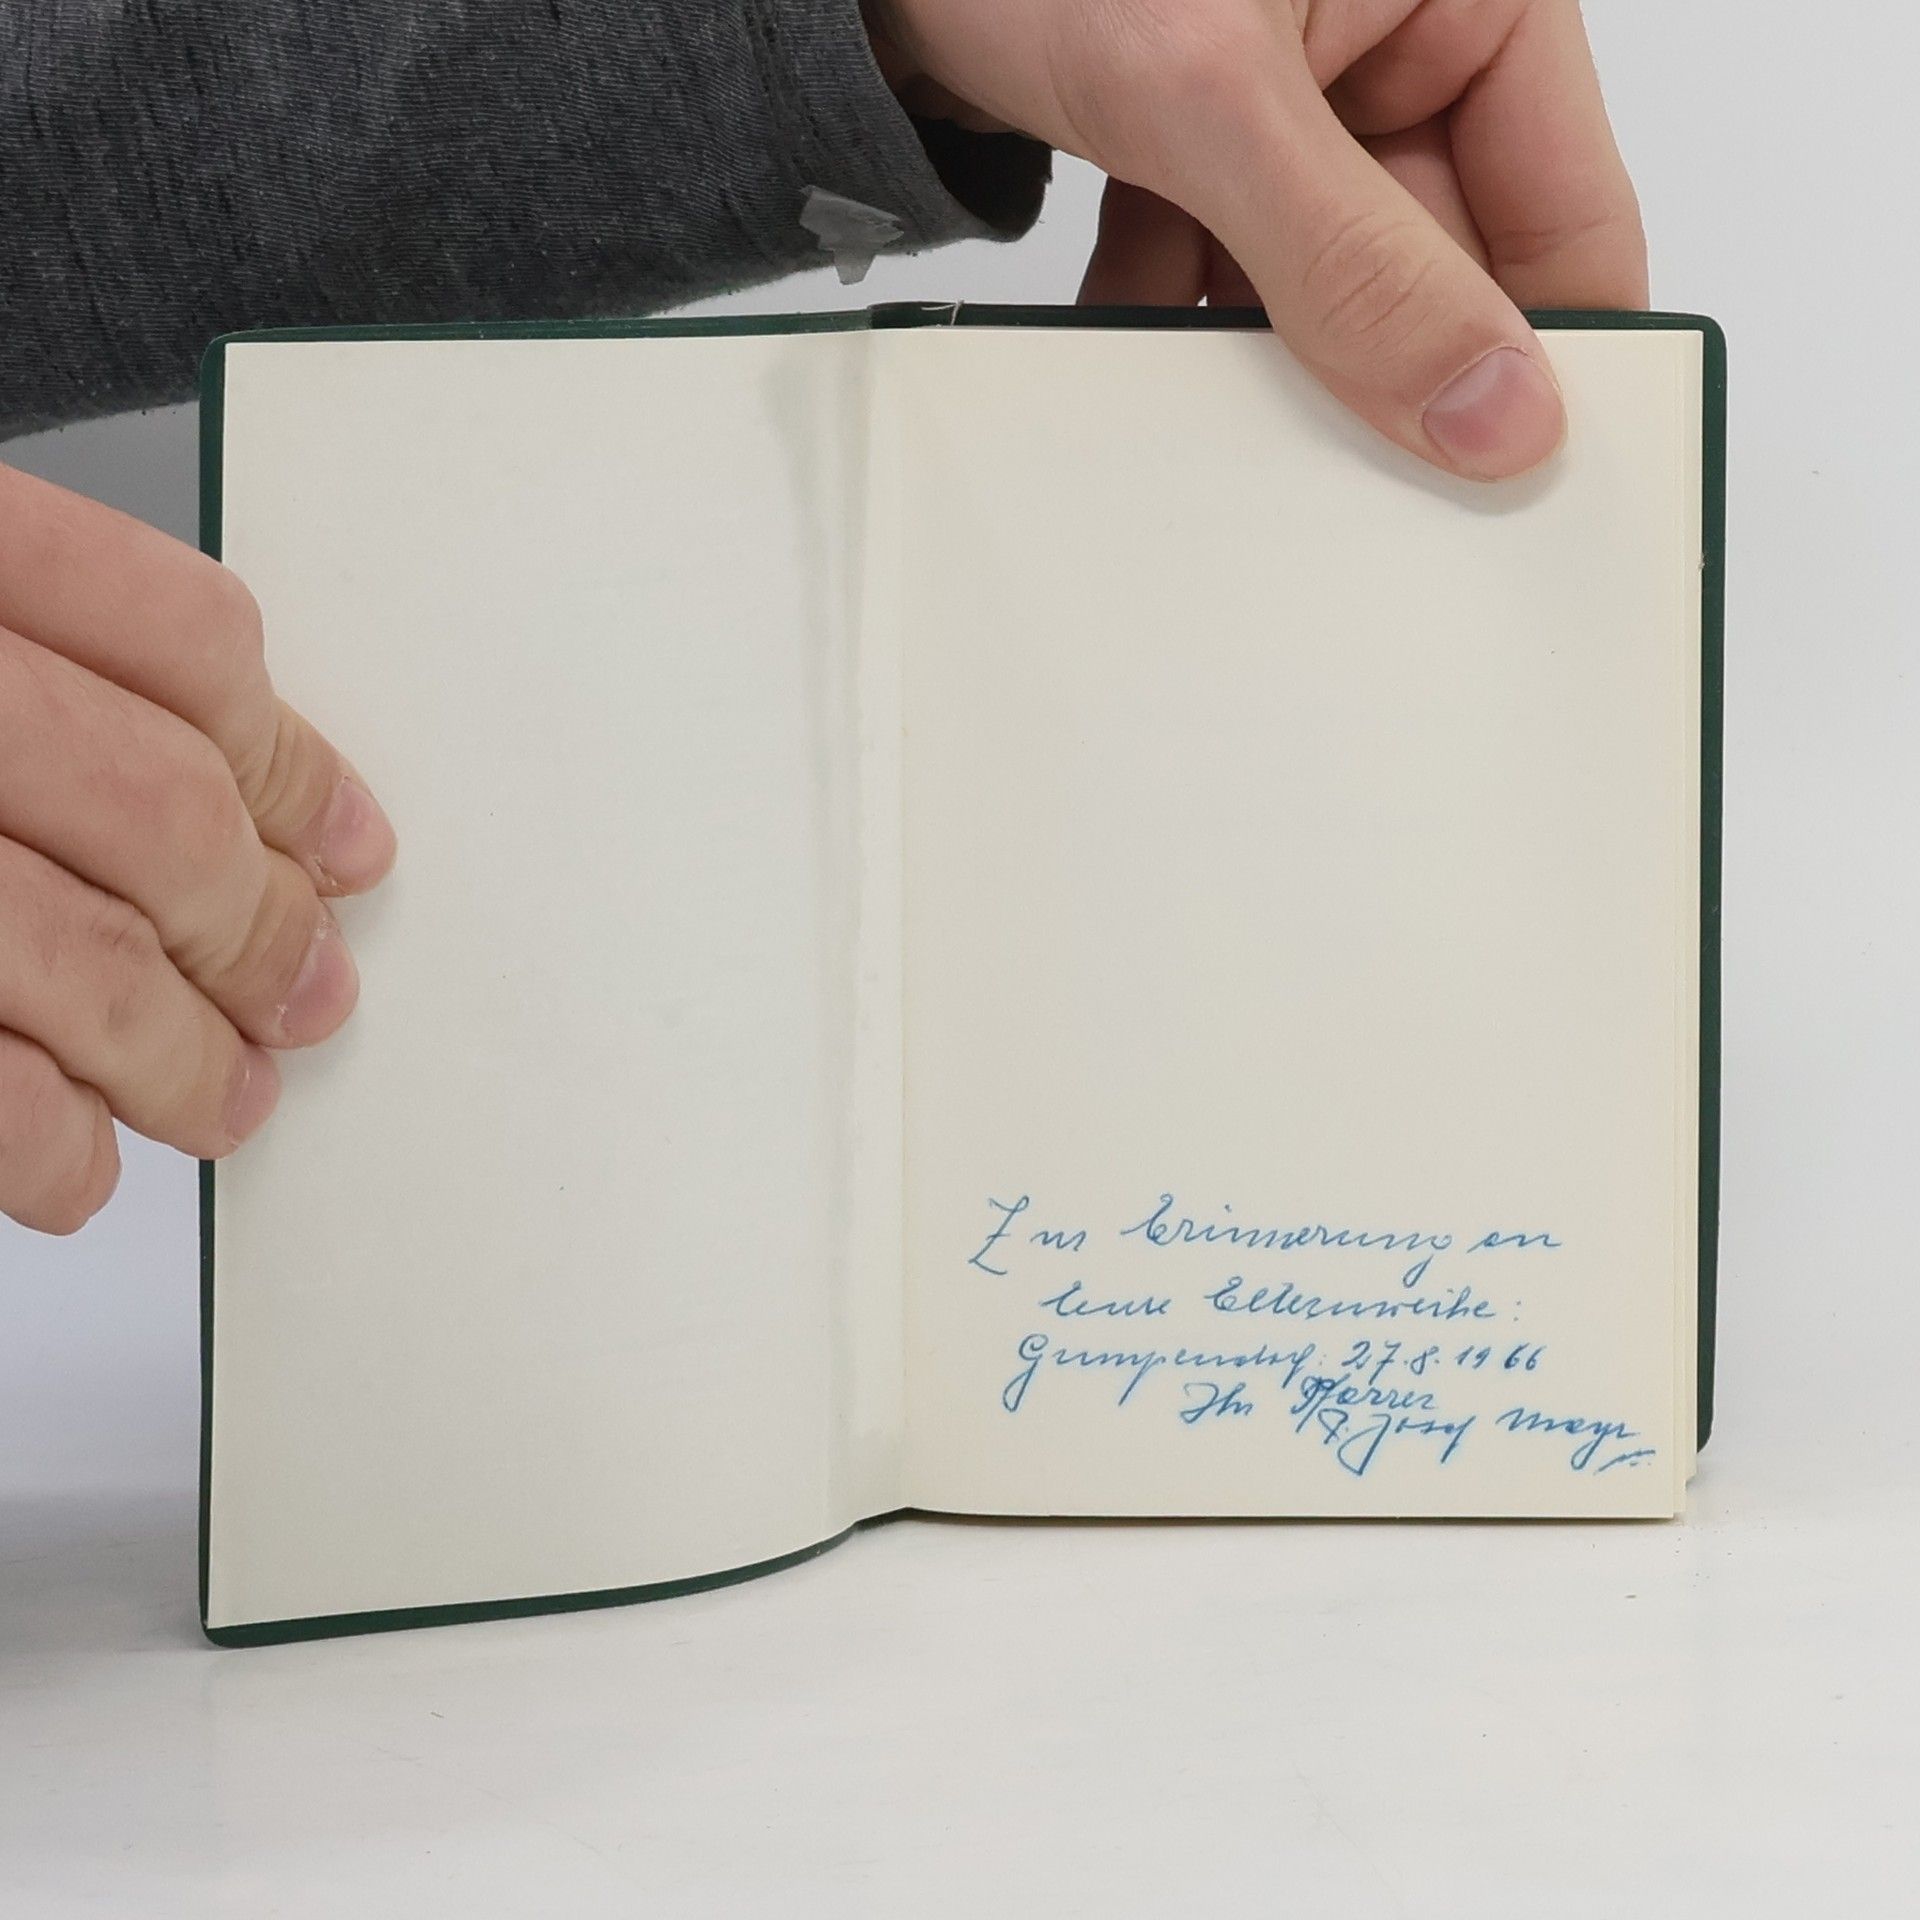 Zur Erinnerung an
Eure Elternweihe:
Gumpendorf: 27.8.1966
Ihr Pfarrer
P. Josef Mayr